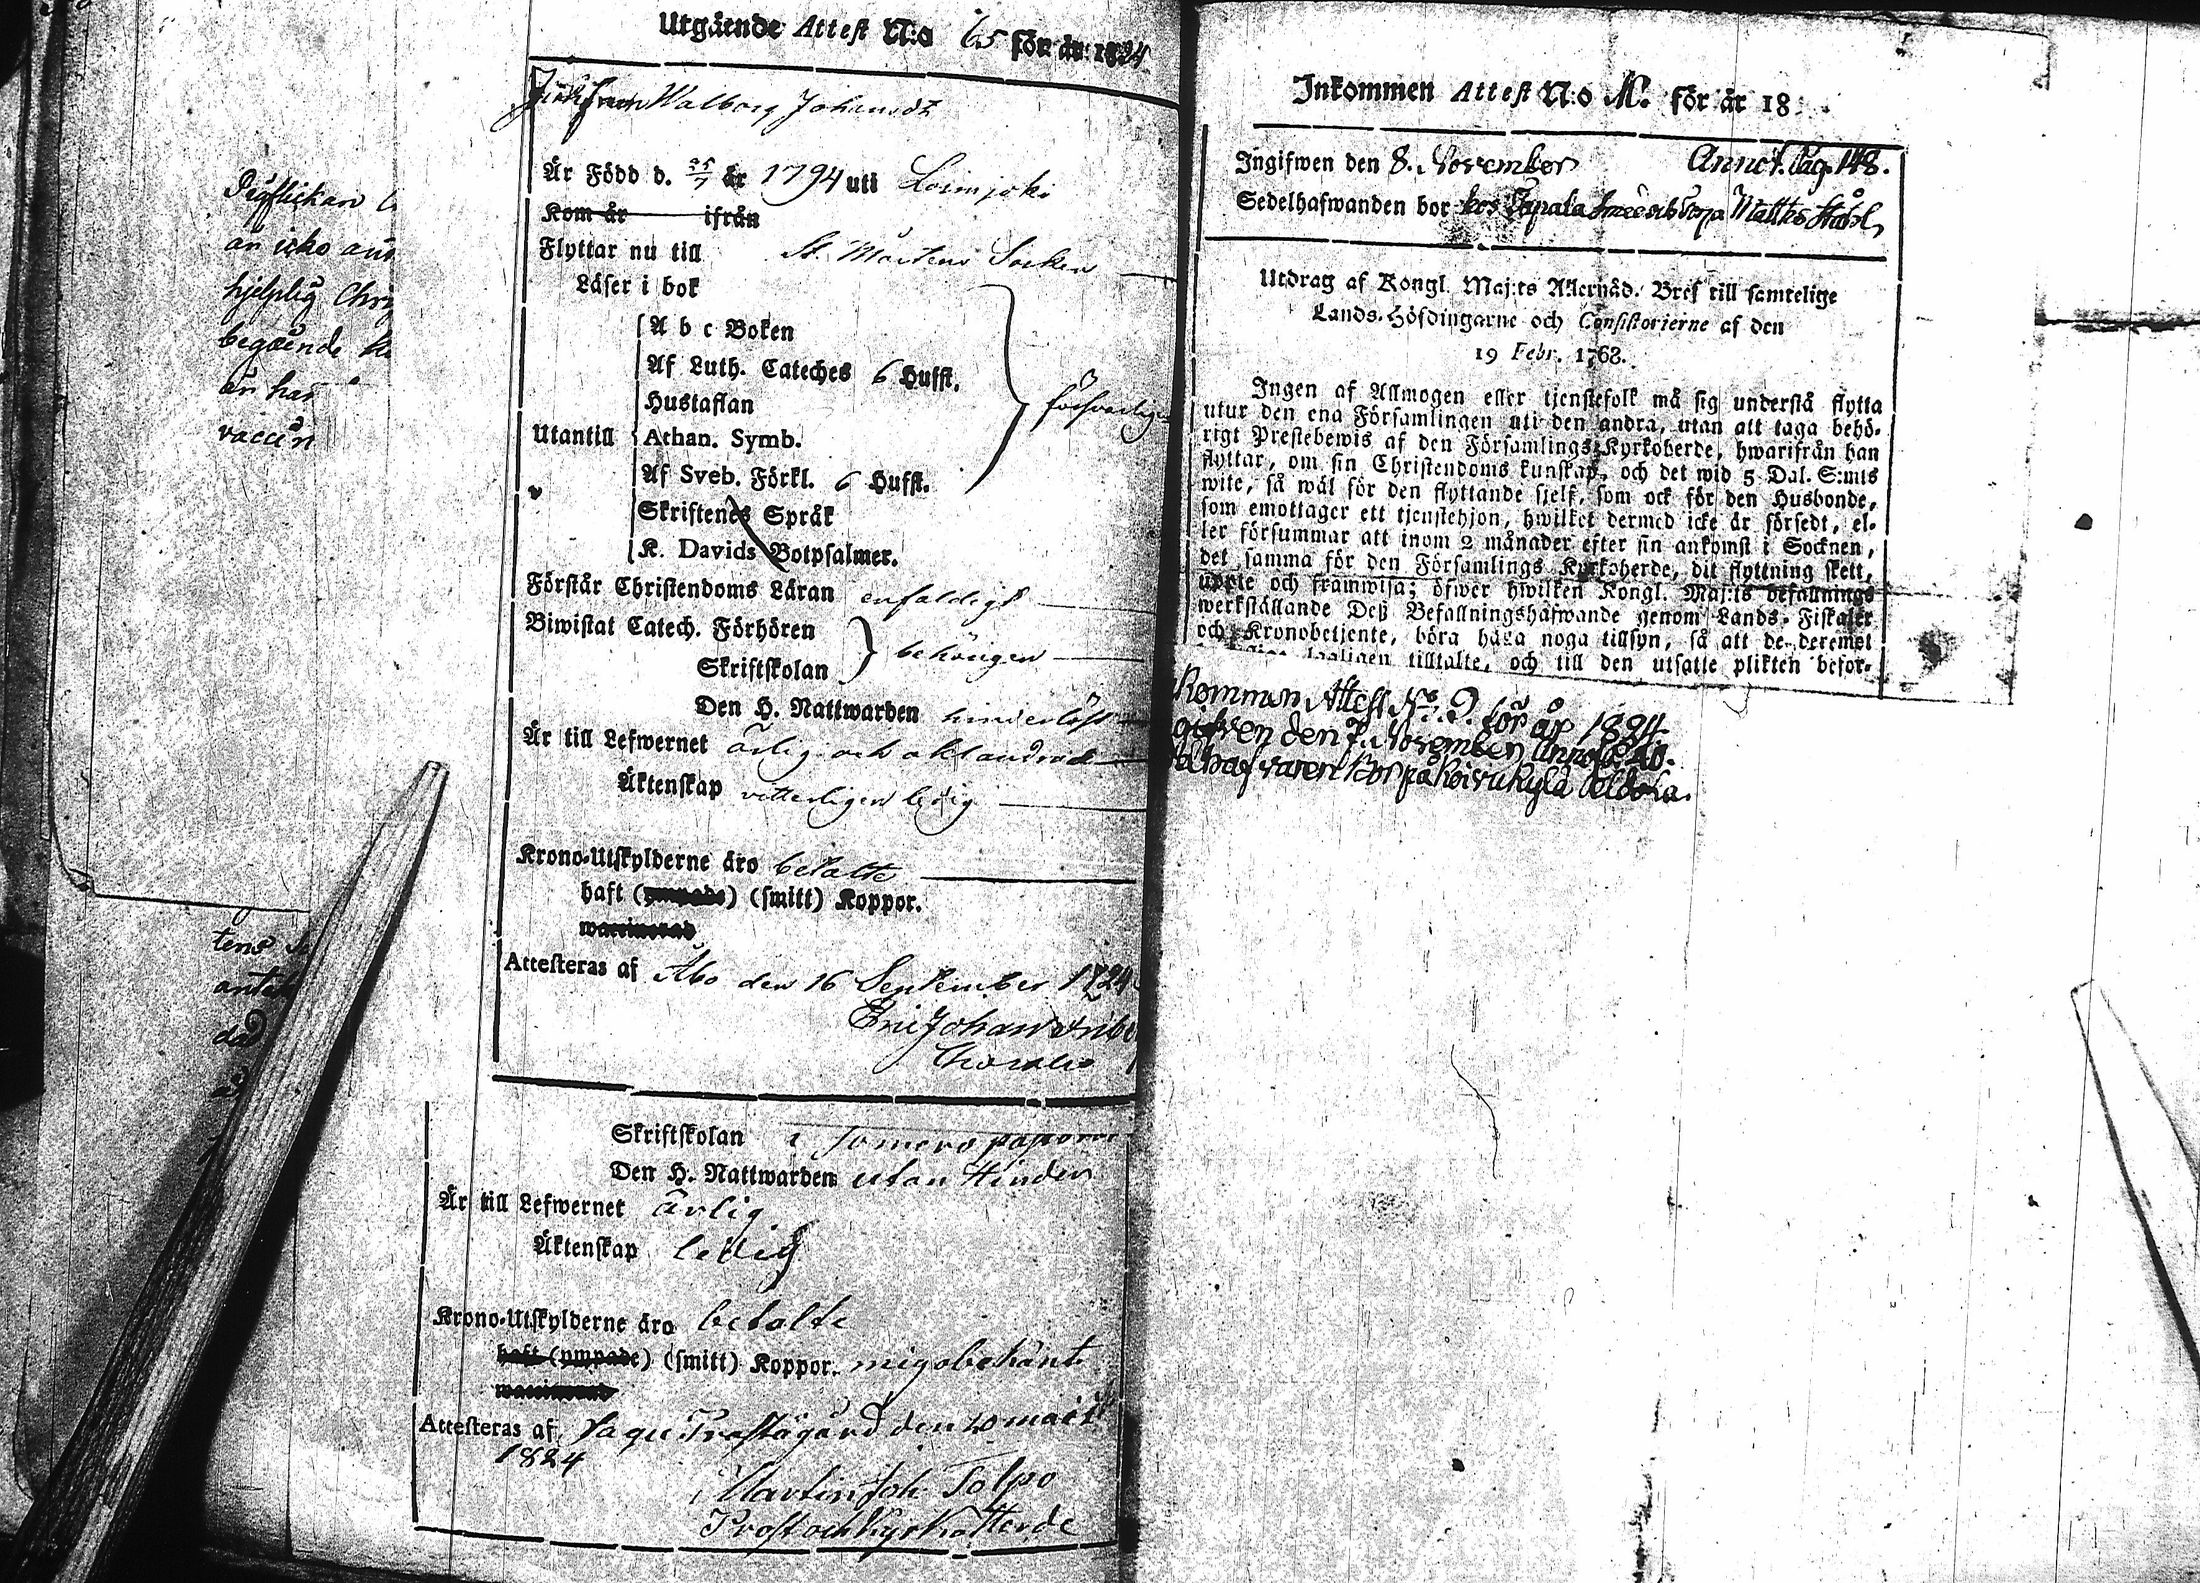 Utgående Attest N:o 65 för år 1824
Walborg Johansdt
Är Född d. 25/7 år 1794 uti Loimjoki
Kom år ifrån
Flyttar nu till St. Mårtens Socken
Läser i bok
A b c Boken
Af Luth. Cateches 6 Hufst.
Hustaflan
försvarligen
Utantill Athan. Symb.
Af Sveb. Förkl. 6 Hufst.
Skriftenes Språk
K. Davids Botpsalmer.
Förstår Christendoms Läran enfaldigt
Biwistat Catech. Förhören
behörigen
Skriftskolan
Den H. Nattwarden hinderlöst
Är till Lefwernet ärlig och oklandrad
Äktenskap vetterligen ledig
Krono-Utskylderne äro betalte
haft (ympade) (smitt) Koppor.
waccinerad
Attesteras af Åbo den 16 September 1824
Eric Johan
Skriftskolan i
Den H. Nattwarden utan Hinder
Är till Lefwernet ärlig
Äktenskap ledig
Krono-Utskylderne äro betalte
haft (ympade) (smitt) Koppor. mig obekant
waccinerad
Attesteras af, Pragstägård den
1824
Martin Joh. Tolpo
Prost och Kyrkoherde
an icke
hjelplig
begående
än har
vaccin
Inkommen Attest N:o för år 18
Ingifwen den 8. November Annot. Pag. 148.
Sedelhafwanden bor hos Matts Ståhl
Utdrag af Kongl. Maj:ts Allernåd. Bref till samtelige
Lands-Höfdingarne och Consistorierne af den
19 Febr. 1768.
Ingen af Allmogen eller tjenstefolk må sig understå flytta
utur den ena Församlingen uti den andra, utan att taga behö-
rigt Prestebewis af den Församlings Kyrkoherde, hwarifrån han
flyttar, om sin Christendoms kunskap, och det wid 5 Dal. S:mts
wite, så wäl för den flyttande sjelf, som ock för den Husbonde,
som emottager ett tjenstehjon, hwilket dermed icke är försedt, el-
ler försummar att inom 2 månader efter sin ankomst i Socknen,
det samma för den Församlings Kyrkoherde, dit flyttning skett,
uppte och framwisa; öfwer hwilken Kongl. Maj:ts befallnings
werkställande Deß Befallningshafwande genom Lands-Fiskaler
och Kronobetjente, böra hafa noga tillsyn, så att de deremot
lagligen tilltalte, och till den utsatte plikten befor-
kommen Attest N:o 9. för år 1824.
gifven den 7. November Annot. P. 40.
hafvaren Bor på Koivukylä